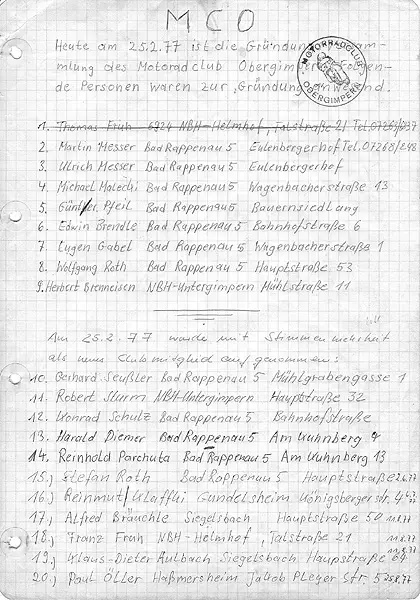 MCO
Heute am 25.2.77 ist die Gründungsversamm-
mlung des Motoradclub Obergimpern Folgen-
de Personen waren zur Gründung anwesend.
MOTORRADCLUB
OBERGIMPERN
1. Thomas Früh 6924 NBH-Helmhof, Talstraße 21 Tel. 07263/
2. Martin Messer Bad Rappenau 5 Eulenbergerhof Tel. 07268/248
3. Ulrich Messer Bad Rappenau 5 Eulenbergerhof
4. Michael Malechi Bad Rappenau 5 Wagenbacherstraße 13
5. Günther Pfeil Bad Rappenau 5 Bauernsiedlung
6. Edwin Brendle Bad Rappenau 5 Bahnhofstraße 6
7. Eugen Gabel Bad Rappenau 5 Wagenbacherstraße 1
8. Wolfgang Roth Bad Rappenau 5 Hauptstraße 53
9. Herbert Brenneisen NBH-Untergimpern Mühlstraße 11
Am 25.2.77 wurde mit Stimmenmehrheit
als neue Clubmitglied aufgenommen:
10. Gerhard Seußler Bad Rappenau 5 Mühlgrabengasse 1
11. Robert Sturm NBH-Untergimpern Hauptstraße 32
12. Konrad Schulz Bad Rappenau 5 Bahnhofstraße
13. Harald Diemer Bad Rappenau 5 Am Kuhnberg
14. Reinhold Parchuta Bad Rappenau 5 Am Kuhnberg 13
15.) Stefan Roth Bad Rappenau 5 Hauptstraße
16.) Reinmut Klaffki Gundelsheim Königsbergerstr. 4
17.) Alfred Bräuchle Siegelsbach Hauptstraße 50
18.) Franz Früh NBH-Helmhof, Talstraße 21
19.) Klaus-Dieter Aulbach Siegelsbach Haupstraße
20.) Paul Öller Haßmersheim Jakob Pleyer Str. 5